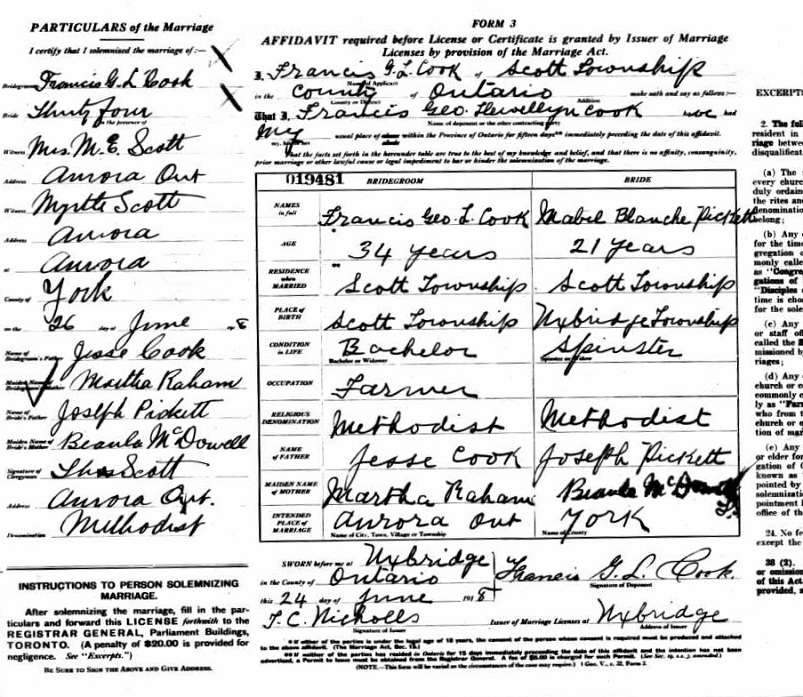 PARTICULARS of the Marriage
I certify that I solemnized the marriage of:—
Bridegroom Francis G. L. Cook
Bride Thirty Four
in the presence of
Witness Mrs. M. E. Scott
Address Aurora Ont
Witness Myrtle Scott
Address Aurora
at Aurora
County of York
on the 26 day of June 1918
Name of Bridegroom's Father Jesse Cook
Maiden Name of Bridegroom's Mother Martha Raham
Name of Bride's Father Joseph Pickett
Maiden Name of Bride's Mother Beaula McDowell
Signature of Clergyman Thos Scott
Address Aurora Ont.
Denomination Methodist
INSTRUCTIONS TO PERSON SOLEMNIZING
MARRIAGE.
After solemnizing the marriage, fill in the par-
ticulars and forward this LICENSE forthwith to the
REGISTRAR GENERAL, Parliament Buildings,
TORONTO. (A penalty of $20.00 is provided for
negligence. See "Excerpts.")
BE SURE TO SIGN THE ABOVE AND GIVE ADDRESS.
FORM 3
AFFIDAVIT required before License or Certificate is granted by Issuer of Marriage
Licenses by provision of the Marriage Act.
I, Francis G. L. Cook of Scott Township
Name of Applicant
in the County of Ontario make oath and say as follows:—
County or District Addition
That I, Francis Geo. Llewellyn Cook had
Name of deponent or the other contracting party
my usual place of abode within the Province of Ontario for fifteen days** immediately preceding the date of this affidavit.
That the facts set forth in the hereunder table are true to the best of my knowledge and belief, and that there is no affinity, consanguinity,
prior marriage or other lawful cause or legal impediment to bar or hinder the solemnization of the marriage.
019481 BRIDEGROOM BRIDE
NAMES in full Francis Geo. L. Cook Mabel Blanche Pickett
AGE 34 years 21 years
RESIDENCE when MARRIED Scott Township Scott Township
PLACE OF BIRTH Scott Township Uxbridge Township
CONDITION IN LIFE Bachelor Spinster
Bachelor or Widower Spinster or Widow
OCCUPATION Farmer
RELIGIOUS DENOMINATION Methodist Methodist
NAME OF FATHER Jesse Cook Joseph Pickett
MAIDEN NAME OF MOTHER Martha Raham Beaula McDowell
INTENDED PLACE OF MARRIAGE Aurora Ont York
Name of City, Town, Village or Township Name of County
SWORN before me at Uxbridge
in the County of Ontario Francis G. L. Cook
Signature of Deponent
this 24 day of June 1918
F. C. Nicholls Issuer of Marriage Licenses at Uxbridge
Signature of Issuer Address of Issuer
* If either of the parties is under the legal age of 18 years, the consent of the person whose consent is required must be produced and attached
to the above affidavit. (The Marriage Act, Sec. 15.)
** If neither of the parties has resided in Ontario for 15 days immediately preceding the date of this affidavit and the intention has not been
advertised, a Permit to issue must be obtained from the Registrar General. A fee of $5.00 is charged for such Permit.
(NOTE.—This form will be varied as the circumstances of the case may require.) 1 Geo. V., c. 32, Form 3.
EXCERPTS
2. The foll
resident in
riage betwee
disqualificat
(a) The
every churc
duly ordain
the rites and
denomination
belong;
(b) Any
for the time
gregation o
monly calle
as "Congre
gations of
"Disciples
time is cho
for the sole
(c) Any
or staff o
called the
missioned b
riages;
(d) Any
church or c
commonly c
ly as "Farr
who from t
church or c
tion of mar
(e) Any
or elder for
gation of C
known as
pointed by
solemnizatio
pointment
office of th
24. No fe
except the
38 (2).
or omission
of this Act
provided, s